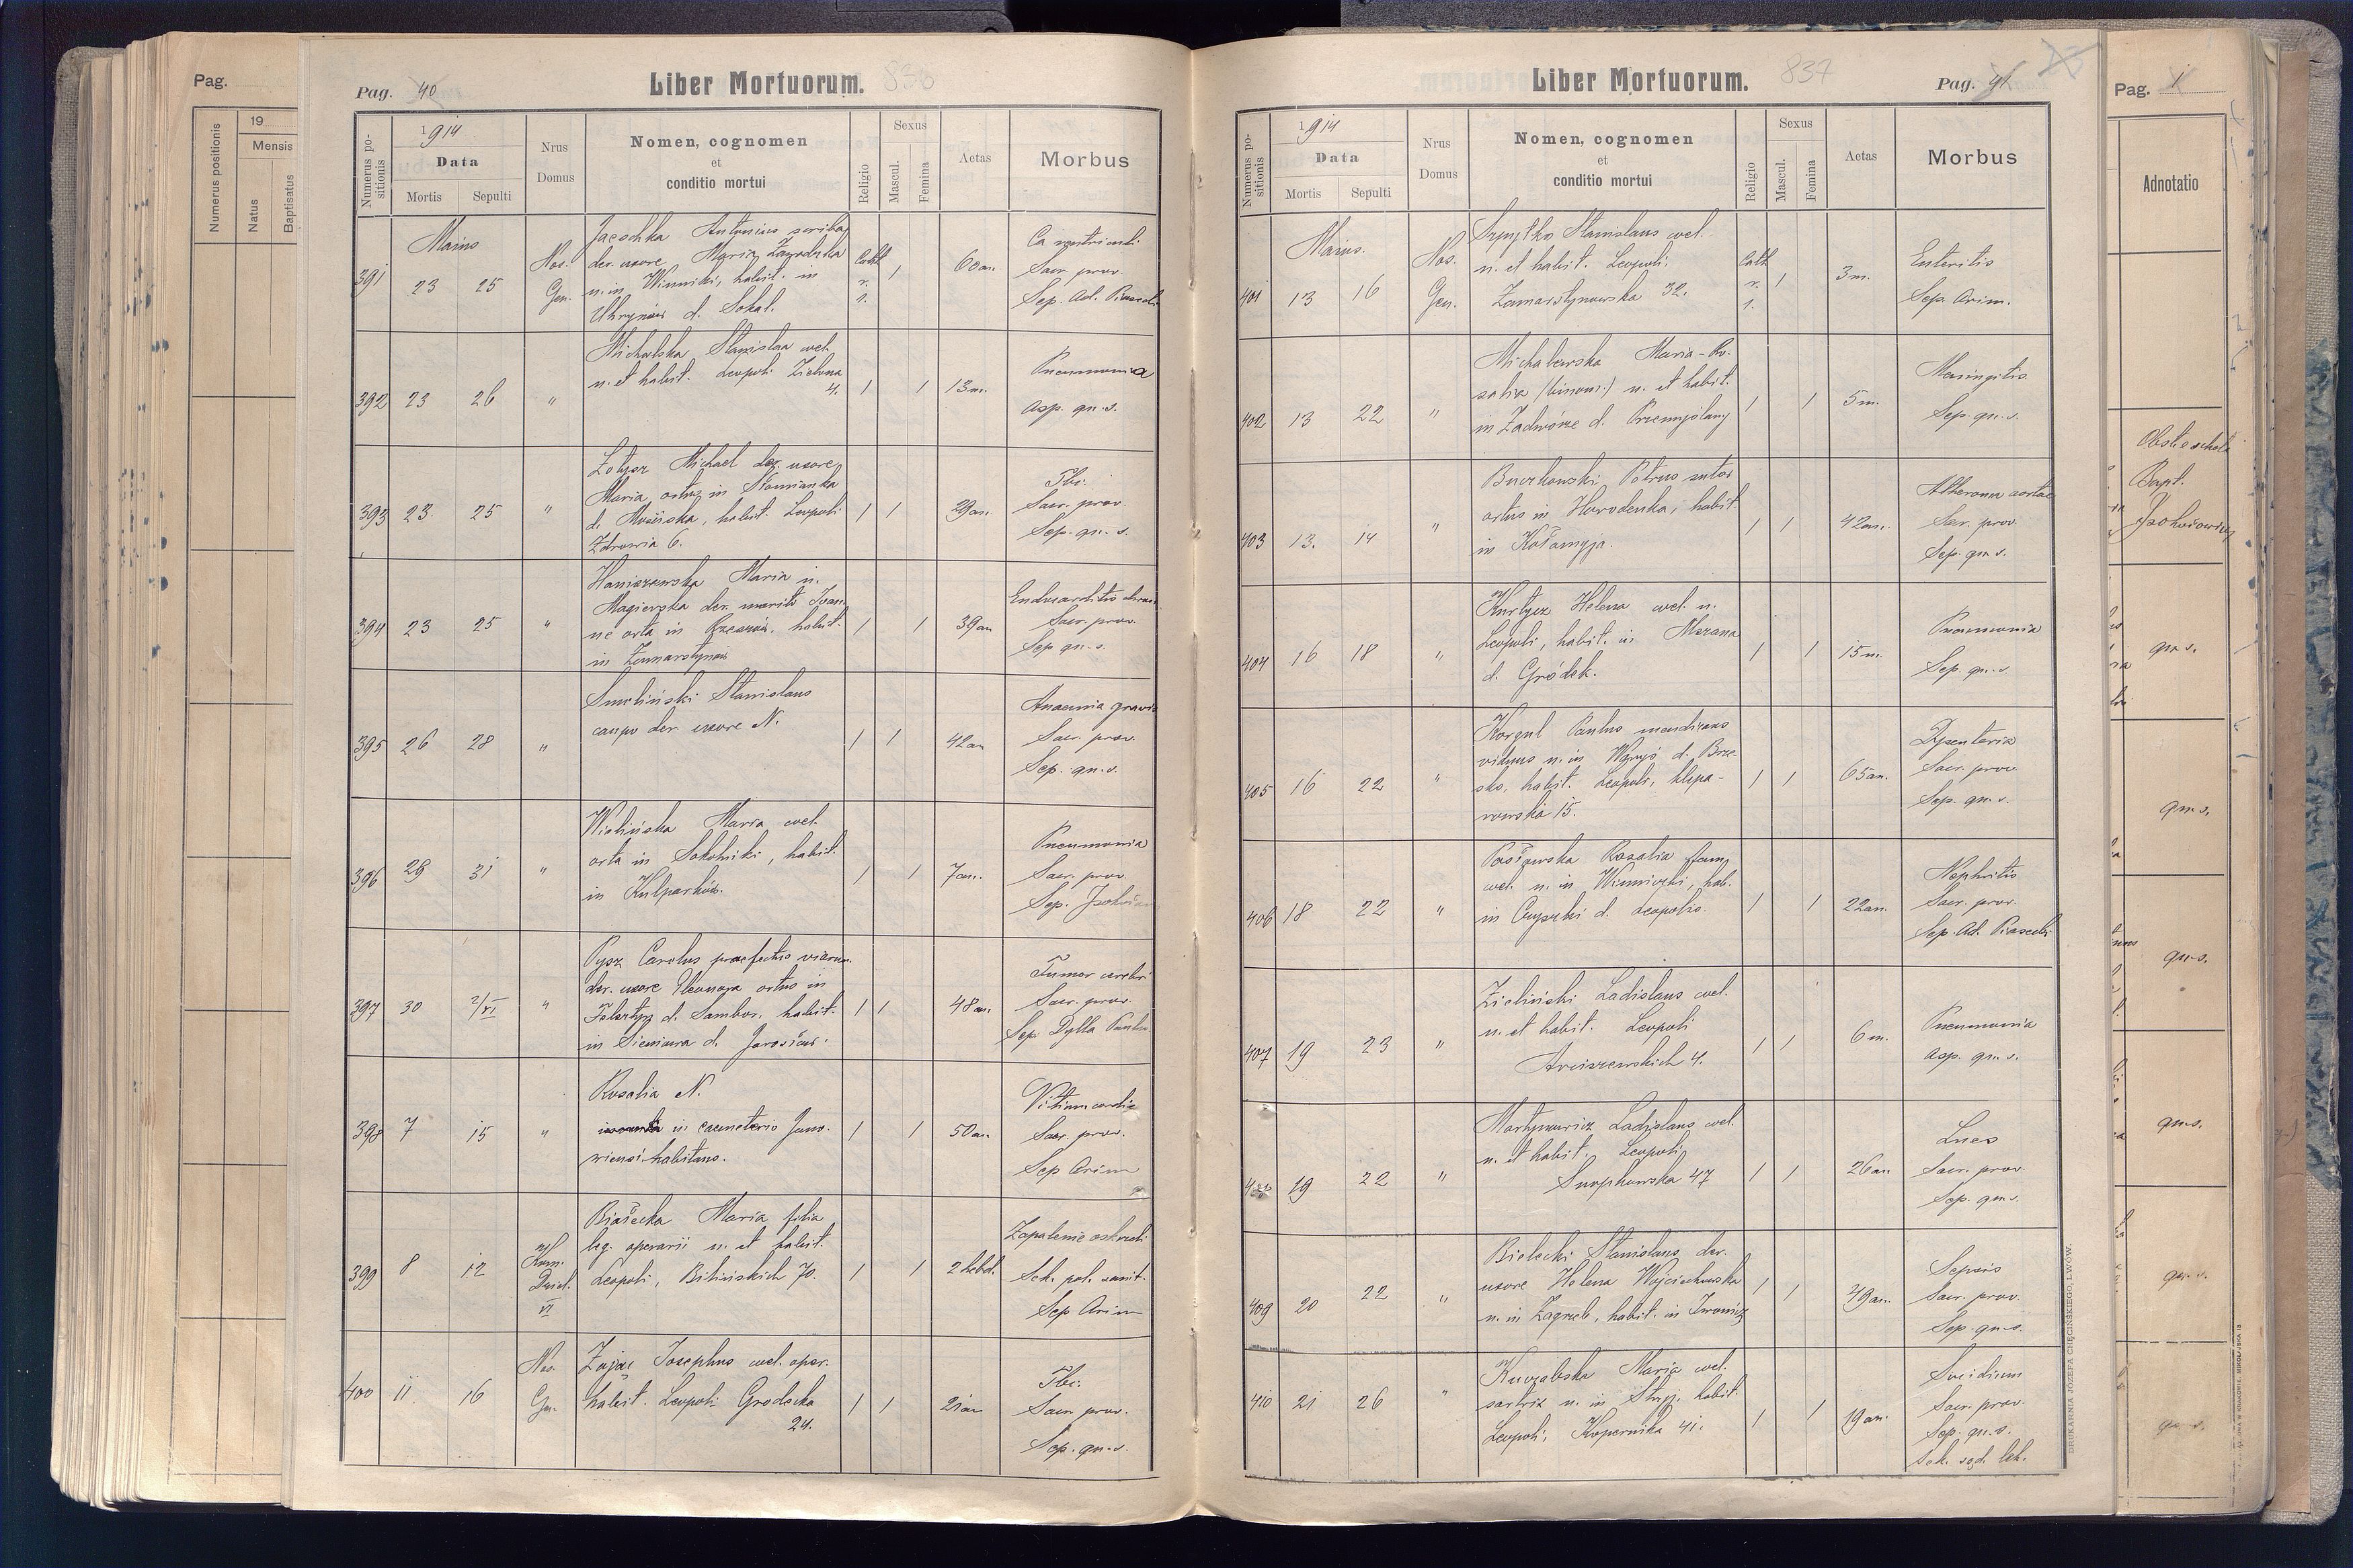 Pag.
Numerus positionis
19
Mensis
Natus
Baptisatus
Pag. 40
Liber Mortuorum.
Numerus positionis
1914
Data
Mortis
Sepulti
Nrus Domus
Nomen, cognomen
et
conditio mortui
Religio
Sexus
Mascul.
Femina
Aetas
Morbus
Maius
391 23 25
Nos.
Gen.
Jaeschka Antonius scriba
der. uxore Maria Zagodzka
n. in Winniki, habit. in
Uhrynów d. Sokal.
Cath
r.
1.
1
60 an.
Ca ventriculi
Sacr. prov.
Sep. Ad. Piasecki
392 23 26 "
Michalska Stanislaa coel.
n. et habit. Leopoli Zielona
4.
1 1 13 m.
Pneumonia
Asp. qu. s.
393 23. 25 "
Łotysz Michael der. uxore
Maria ortus in Słomianka
d. Mościska, habit. Leopoli
Zdrowia 6.
1 1 29 an.
Tbc.
Sacr. prov.
Sep. qu. s.
394 23 25 "
Haniszewska Maria n.
Magierska der. marito Joan-
ne orta in Rzeszów, habit.
in Zamarstynów
1 1 39 an
Endocarditis chron.
Sacr. prov.
Sep qu. s.
395 26 28 "
Smoliński Stanislaus
caupo der. uxore N.
1 1 42 an
Anaemia gravis
Sacr. prov.
Sep. qu. s.
396 29 31 "
Wielińska Maria coel.
orta in Sokolniki, habit.
in Kulparków.
1 1 7 an.
Pneumonia
Sacr. prov.
Sep.
397 30 2/VI "
Pysz Carolus praefectus viarum
der. uxore Eleonora ortus in
Felsztyn d. Sambor, habit.
in Sieniawa d. Jarosław.
1 1 48 an.
Tumor cerebri
Sacr. prov.
Sep Dylla Paulus
398 7 15 "
Rosalia N.
in caemeterio Jano-
wiensi habitans.
1 1 50 an.
Vitium cordis
Sacr. prov.
Sep Orim
399 8 12
Kom.
Dziel.
VI
Białecka Maria filia
leg. operarii n. et habit.
Leopoli, Bilińskich 70.
1 1 2 hebd.
Zapalenie oskrzeli
Sch. pol. sanit.
Sep Orim
400 11. 16
Nos.
Gen.
Zając Josephus coel. oper.
habit. Leopoli Grodecka
24.
1 1 21 an
Tbc.
Sacr. prov.
Sep. qu. s.
Liber Mortuorum.
837
Pag. 41
Numerus positionis
1914
Data
Mortis
Sepulti
Nrus Domus
Nomen, cognomen
et
conditio mortui
Religio
Sexus
Mascul.
Femina
Aetas
Morbus
Maius.
401 13 16
Nos.
Gen.
Szpytko Stanislaus coel.
n. et habit. Leopoli.
Zamarstynowska 32.
Cath
r.
1.
1
3 m.
Enteritis
Sep. Orim.
402 13 22 "
Michalewska Maria-Ro-
salia (binom.) n. et habit.
in Zadwórze d. Przemyślany
1 1 5 m.
Meningitis
Sep. qu. s.
403 13. 14 "
Buczkowski Petrus sutor
ortus in Horodenka, habit.
in Kołomyja.
1 1 42 an.
Atheroma aortae
Sacr. prov.
Sep. qu. s.
404 16 18 "
Kurtycz Helena coel. n.
Leopoli, habit. in Mszana
d. Gródek.
1 1 15 m.
Pneumonia
Sep. qu. s.
405 16 22 "
Korgul Paulus mendicans
viduus n. in d. Brze-
sko, habit. Leopoli, Klepa-
rowska 15.
1 1 65 an.
Dysenteria
Sacr. prov.
Sep. qu. s.
406 18 22 "
Rosalia fam.
coel. n. in Winniczki, hab.
in Czyszki d. Leopolis.
1 1 22 an.
Nephritis
Sacr. prov.
Sep. Ad. Piasecki
407 19 23 "
Zieliński Ladislaus coel.
n. et habit. Leopoli
Arciszewskich 4.
1 1 6 m.
Pneumonia
Asp. qu. s.
19 22 "
Martynowicz Ladislaus coel.
n. et habit. Leopoli
Snopkowska 47
1 1 26 an
Lues
Sacr. prov.
Sep. qu. s.
409 20 22 "
Bielecki Stanislaus der.
uxore Helena Wojciechowska
n. in Zagrzeb, habit. in Iwonicz
1 1 49 an.
Sepsis
Sacr. prov.
Sep. qu. s.
410 21 26 "
Kuczabska Maria coel.
sartrix n. in Stryj, habit.
Leopoli, Kopernika 41.
1 1 19 an.
Suicidium
Sacr. prov.
Sep. qu. s.
Sch. sąd. lek.
DRUKARNIA JÓZEFA CHĘCIŃSKIEGO, LWÓW.
Pag. 1
Adnotatio
Bapt.
qu. s.
qu. s.
qu. s.
qu. s.
qu. s.
qu. s.